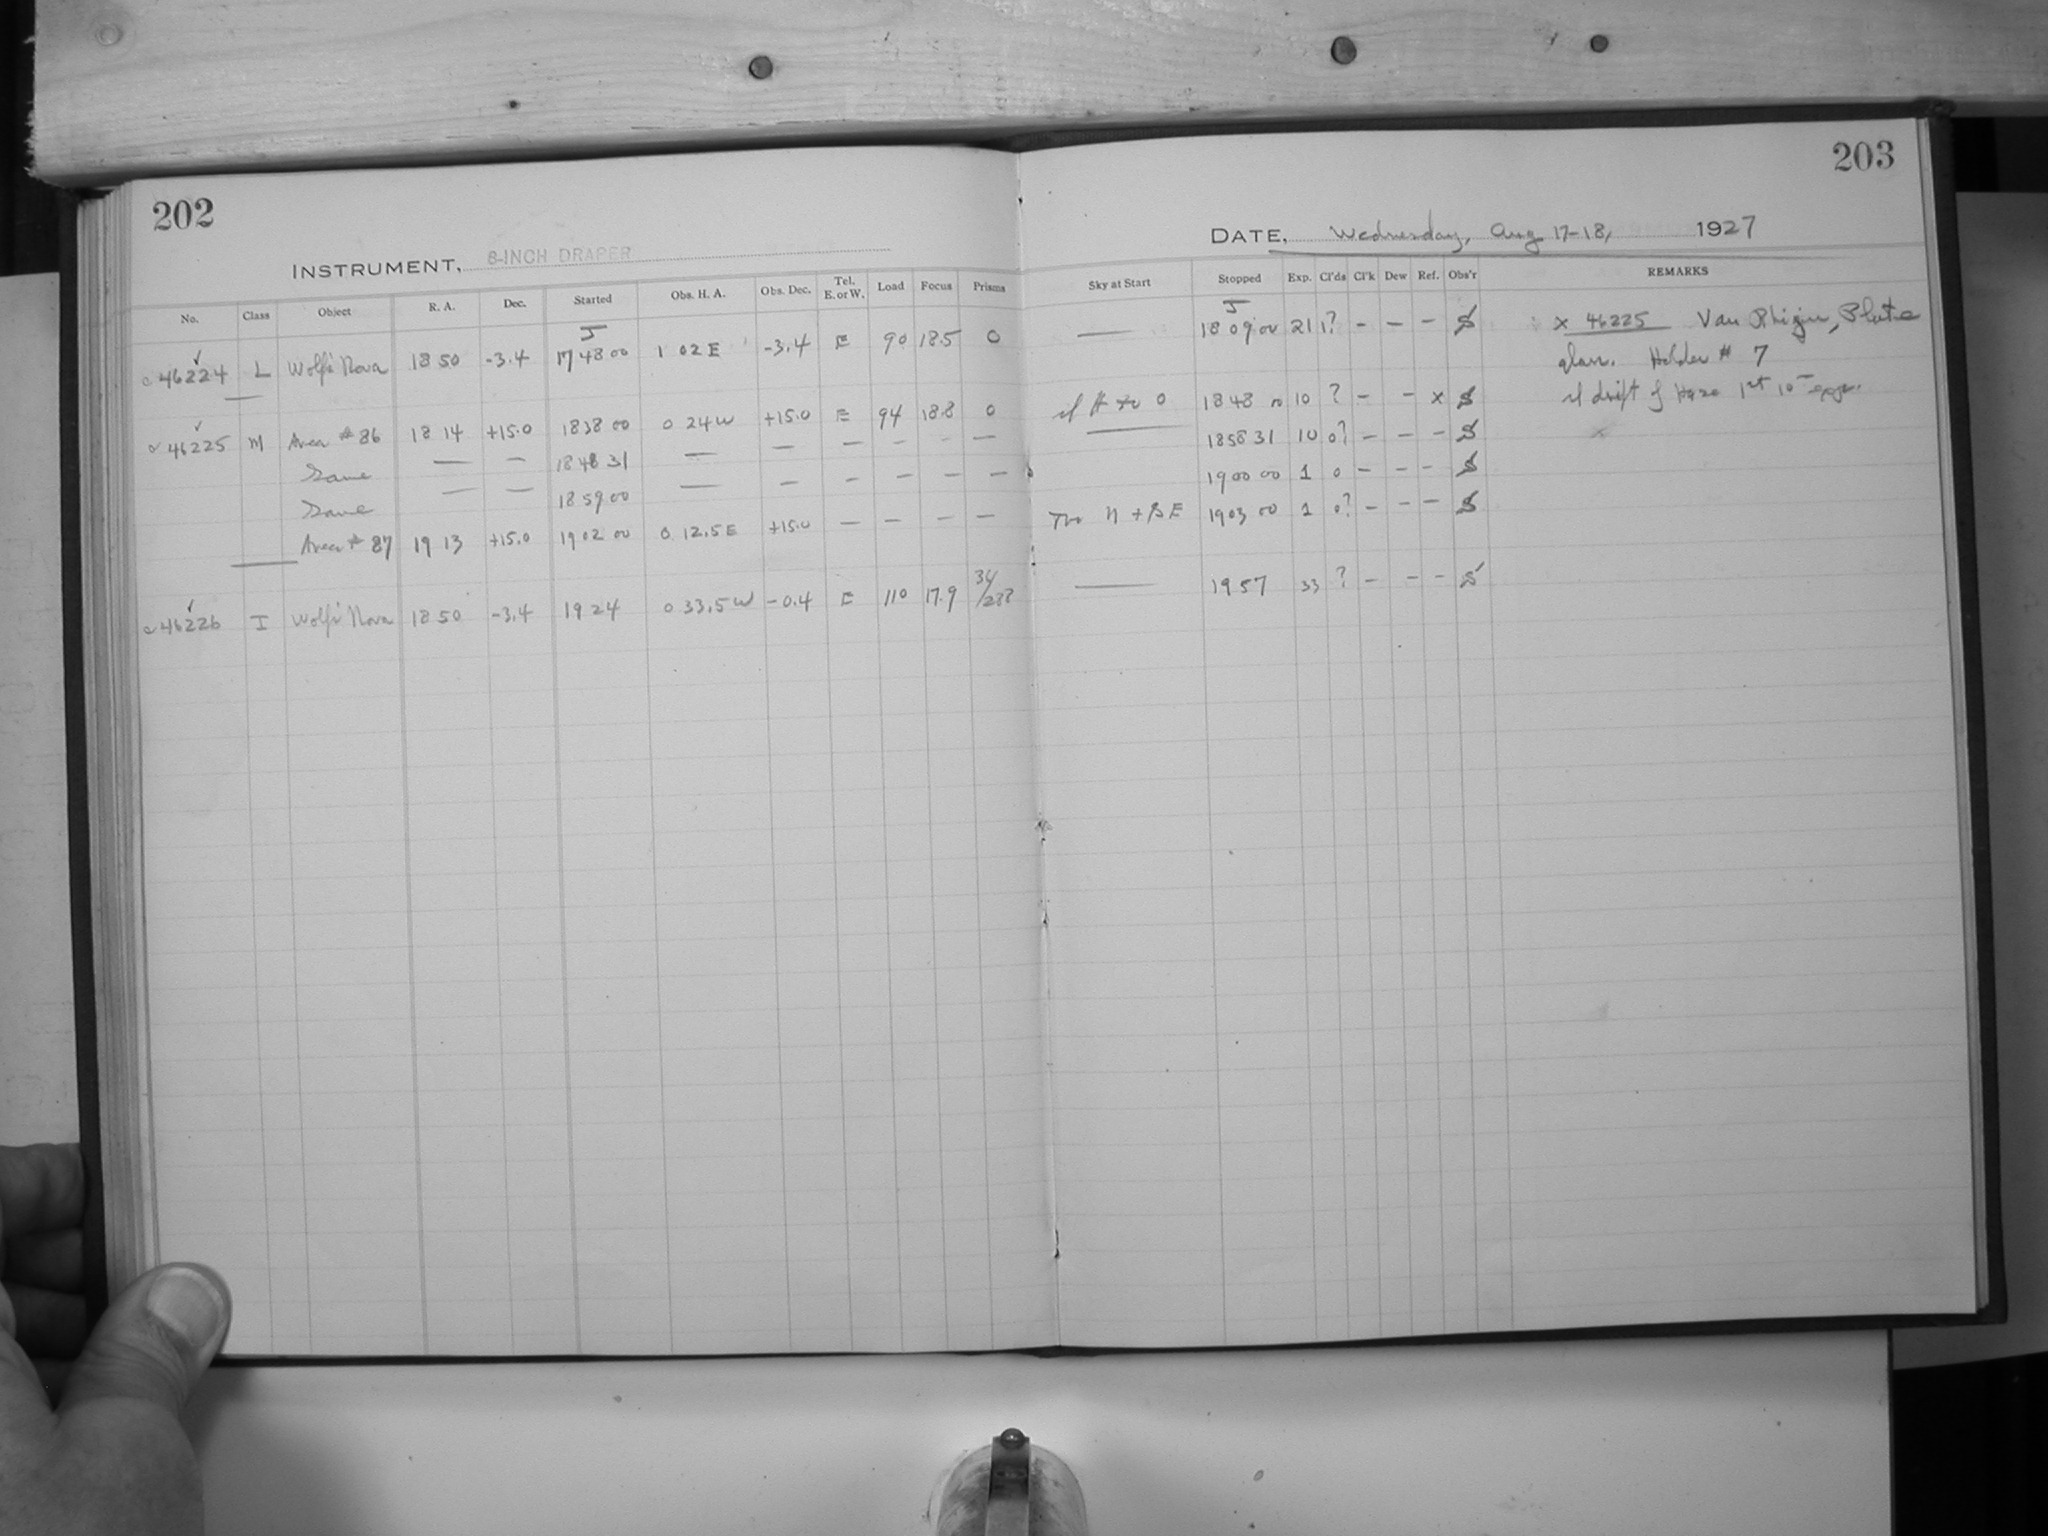 202
INSTRUMENT, 8-INCH DRAPER
No. Class Object R. A. Dec. Started Obs. H. A. Obs. Dec. Tel. E. or W. Load Focus Prisms
J
46224 L Wolf's Nova 18 50 -3.4 17 48 00 1 02 E -3.4 E 90 18.5 0
46225 M Area # 86 18 14 +15.0 18 38 00 0 24 W +15.0 E 94 18.8 0
Same — — 18 48 31 — — — — — —
Same — — 18 59 00 — — — — — —
Area # 87 19 13 +15.0 19 02 00 0 12.5 E +15.0 — — — —
46226 I Wolf's Nova 18 50 -3.4 19 24 0 33.5 W -0.4 E 110 17.9
203
DATE, Wednesday, Aug 17-18, 1927
Sky at Start Stopped Exp. Cl'ds Cl'k Dew Ref. Obs'r REMARKS
J
— 18 09 00 21 1? - - - S x 46225 Van Rhijn, Plate
glass. Holder # 7
0 18 48 00 10 ? - - x S drift of Haze 1st 10
— 18 58 31 10 0? - - - S x
19 00 00 1 0 - - - S
N + SE 19 03 00 1 0? - - - S
— 19 57 33 ? - - - S